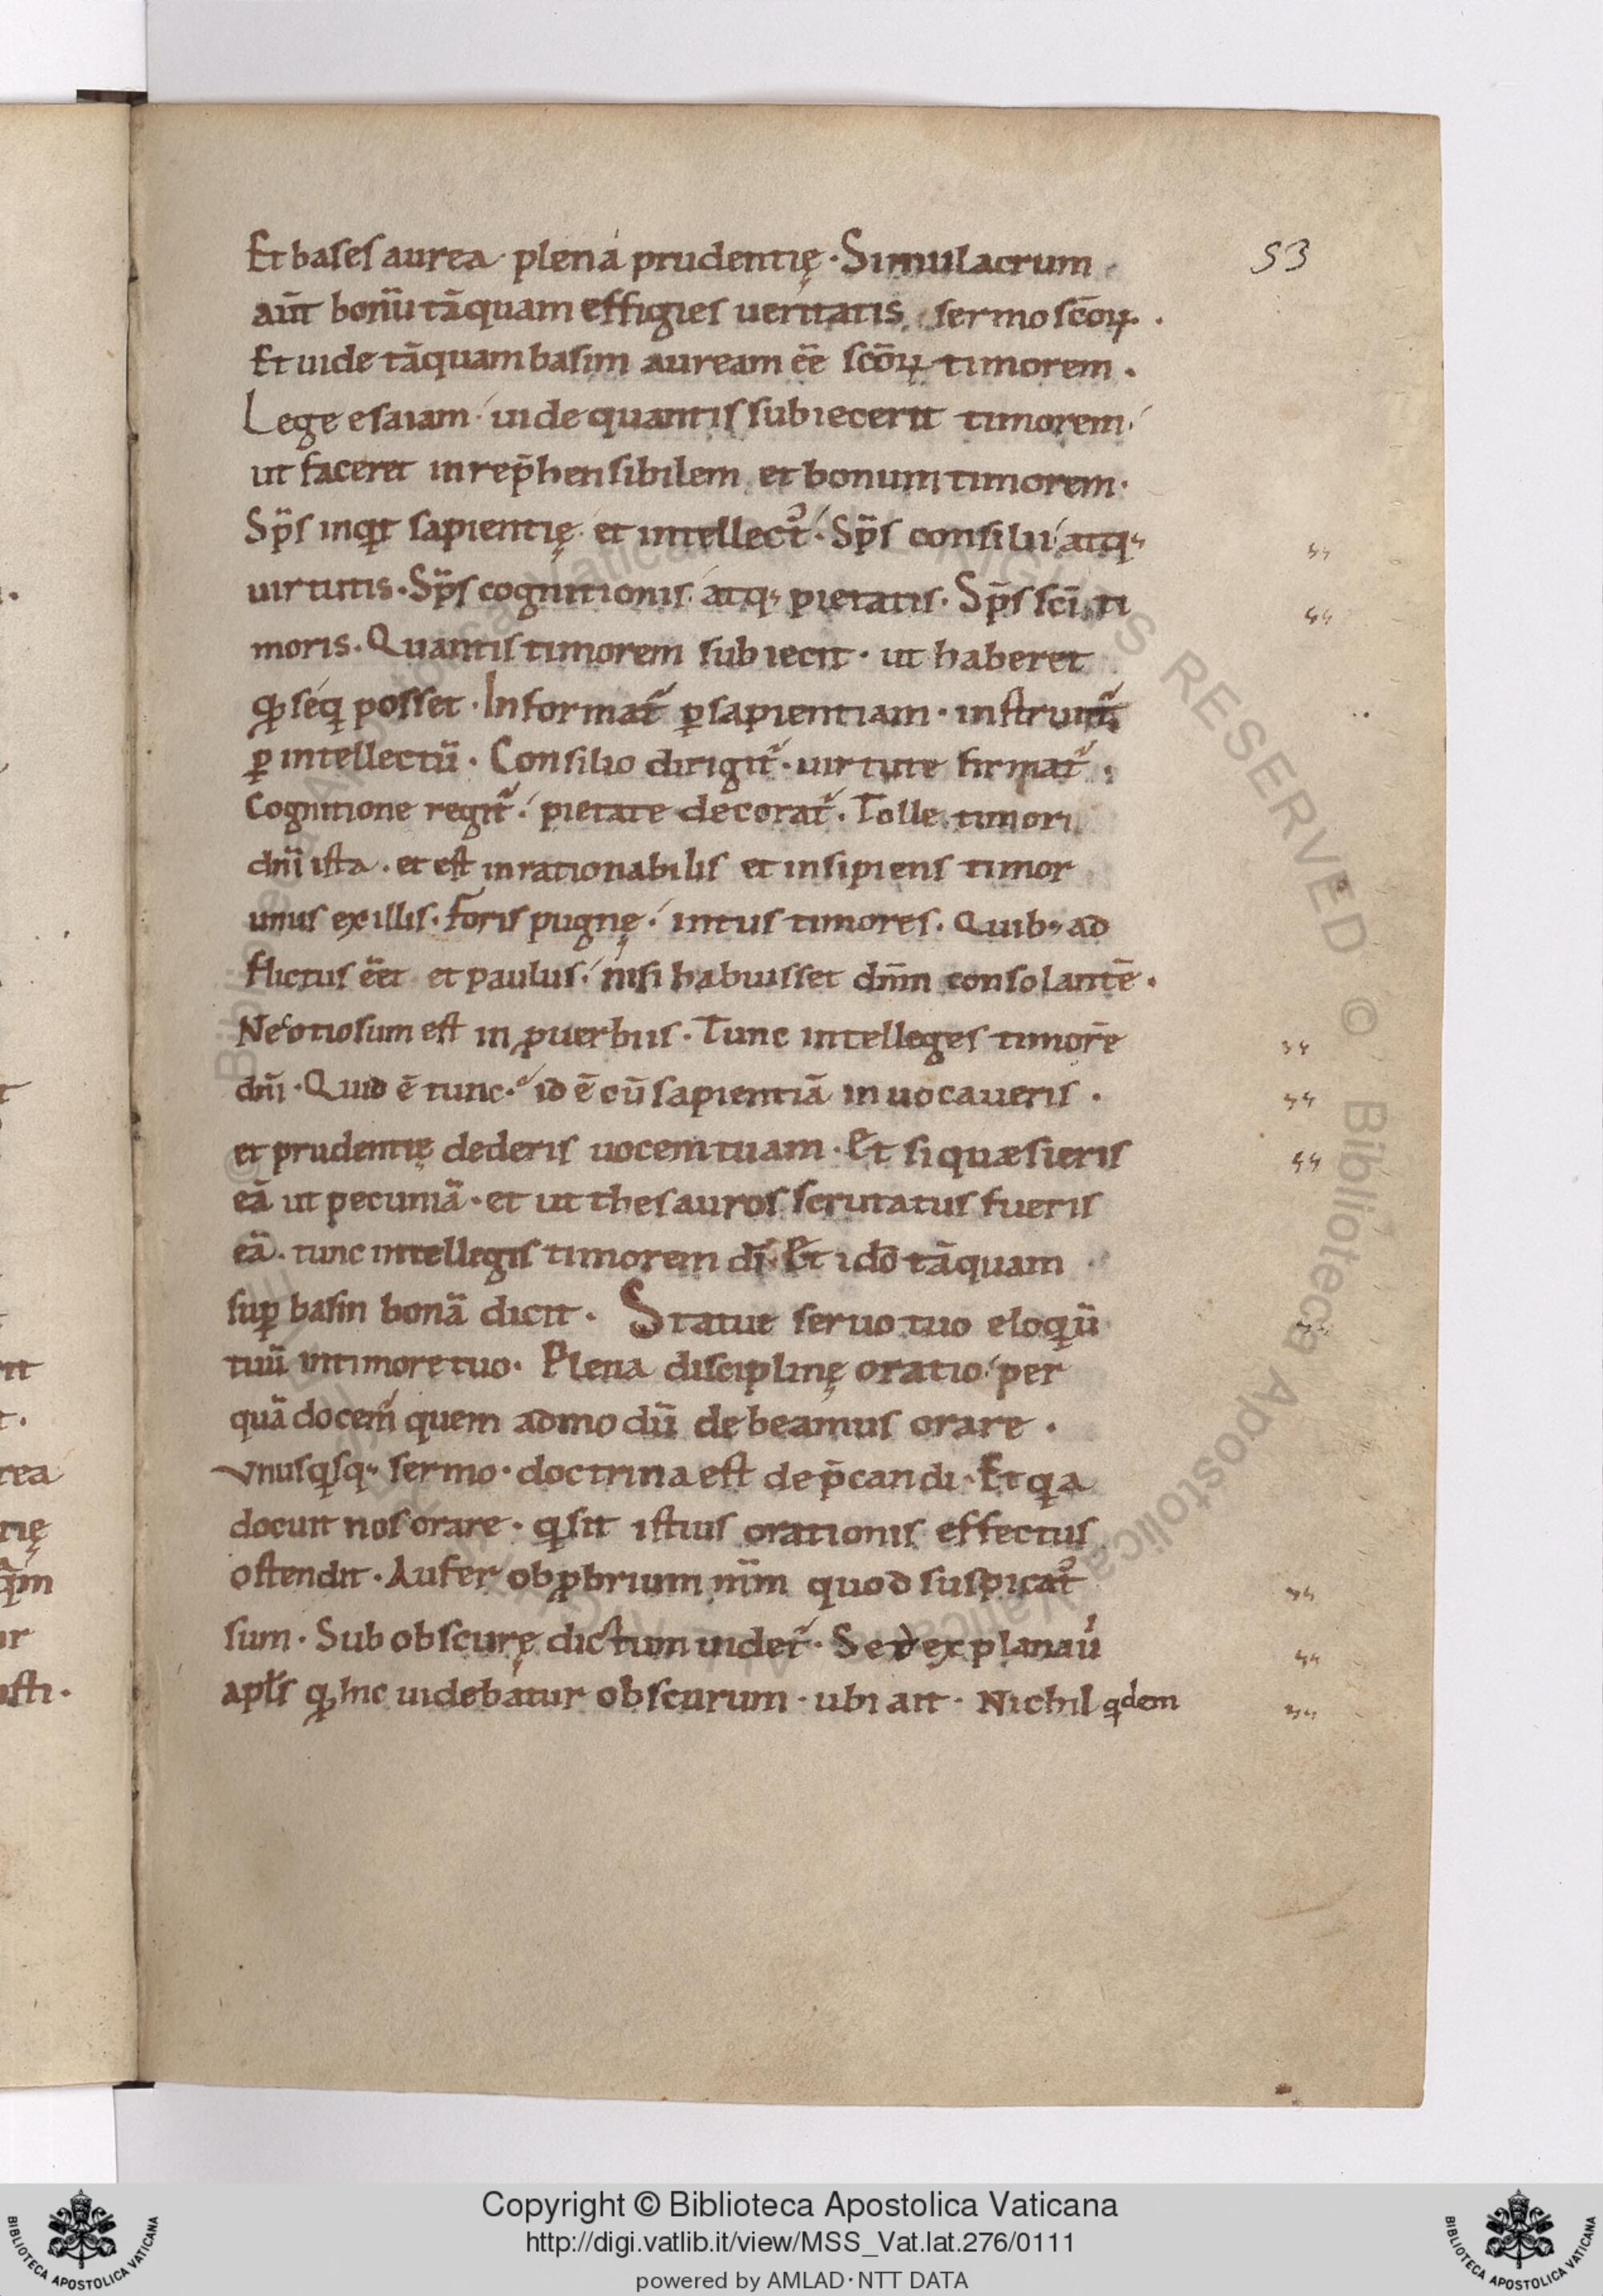 53
Et bases aurea · plena prudentię · Simulacrum
aūt bonū tāquam effigies ueritatis, sermo scōꝝ.
Et uide tāquam basim auream ēē scōꝝ timorem.
Lege esaiam · uide quantis subiecerit timorem ·
ut faceret inrep̄hensibilem et bonum timorem ·
Sp̄s inqͥt sapientię · et intellectꝰ · Sp̄s consilii atq;
uirtutis · Sp̄s cognitionis atq; pietatis · Sp̄s scī ti
moris · Quantis timorem subiecit · ut haberet
ꝙ seq̇ posset · Informat᷑ ꝑ sapientiam · instruit᷑
ꝑ intellectū · Consilio dirigit᷑ · uirtute firmat᷑ ·
Cognitione regit᷑ · pietate decorat᷑ · Tolle timori
dn̄i ista · et est inrationabilis et insipiens timor
unus ex illis · Foris pugnę · intus timores · Quib; ad
flictus ēēt et paulus · nisi habuisset dn̄m consolantē ·
Nec otiosum est in ꝓuerbiis · Tunc intelleges timorē
dn̄i · Quid ē tunc · id ē cū sapientiā inuocaueris ·
et prudentię dederis uocem tuam · Et si quæsieris
eā ut pecuniā · et ut thesauros scrutatus fueris
eā · tunc intellegis timorem dī · Et idō tāquam
suꝑ basin bonā dicit · Statue seruo tuo eloqͥū
tuū in timore tuo · Plena disciplinę oratio · per
quā docem᷑ quem admodū debeamus orare ·
Vnusqͥsq; sermo · doctrina est dep̄candi · Et qͥa
docuit nos orare · qͥ sit istius orationis effectus
ostendit · Aufer obꝓbrium mm̄ quod suspicatꝰ
sum · Sub obscurę dictum uidet᷑ · Sed explanauͥ
apl̄s ꝙ hic uidebatur obscurum · ubi ait · Nichil qͥdem
Copyright © Biblioteca Apostolica Vaticana
http://digi.vatlib.it/view/MSS_Vat.lat.276/0111
powered by AMLAD·NTT DATA
BIBLIOTECA APOSTOLICA VATICANA
BIBLIOTECA APOSTOLICA VATICANA